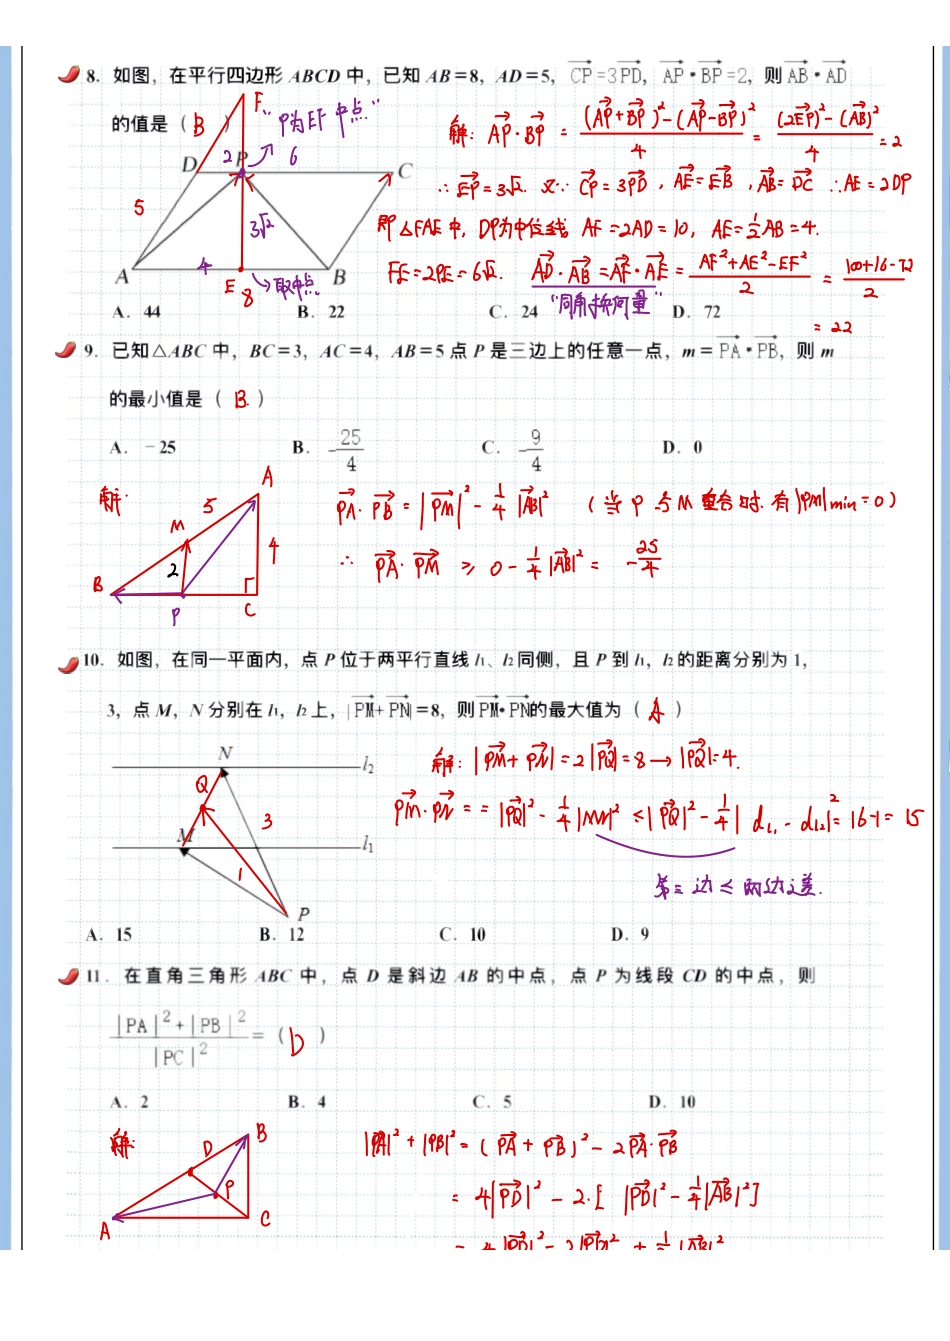 8. 如图，在平行四边形 ABCD 中，已知 AB=8，AD=5，CP=3PD，AP•BP=2，则AB•AD
的值是（ B ）
F
"P为EF中点"
解：AP·BP = (AP+BP)²-(AP-BP)² / 4 = (2EP)²-(AB)² / 4 = 2
D 2 P 6 C
∴ EP=3√2. 又∵ CP=3PD，AE=EB，AB=DC ∴AE=2DP
5 3√2
即△FAE中，DP为中位线 AF=2AD=10，AE=½AB=4.
A 4 E B
8 取中点
FE=2PE=6√2. AD·AB=AF·AE= AF²+AE²-EF² / 2 = 100+16-72 / 2
"同角换向量"
= 22
A. 44 B. 22 C. 24 D. 72
9. 已知△ABC 中，BC=3，AC=4，AB=5 点 P 是三边上的任意一点，m = PA•PB，则 m
的最小值是（ B. ）
A. -25 B. -25/4 C. -9/4 D. 0
解：
A 5 M 4 2 B P C
PA·PB=|PM|²-¼|AB|² （当P与M重合时.有|PM|min=0）
∴ PA·PM ≥ 0-¼|AB|²= -25/4
10. 如图，在同一平面内，点 P 位于两平行直线 l₁、l₂同侧，且 P 到 l₁，l₂的距离分别为 1，
3，点 M，N 分别在 l₁，l₂上，|PM+PN|=8，则PM•PN的最大值为（ A ）
N l₂
Q
3
M l₁
1
P
解：|PM+PN|=2|PQ|=8→|PQ|=4.
PM·PN==|PQ|²-¼|MN|²≤|PQ|²-¼|dl₁-dl₂|²=16-1=15
第三边≤两边之差.
A. 15 B. 12 C. 10 D. 9
11. 在直角三角形 ABC 中，点 D 是斜边 AB 的中点，点 P 为线段 CD 的中点，则
|PA|²+|PB|² / |PC|² =（ D ）
A. 2 B. 4 C. 5 D. 10
解：
B D P A C
|PA|²+|PB|²=(PA+PB)²-2PA·PB
=4|PD|²-2·[|PD|²-¼|AB|²]